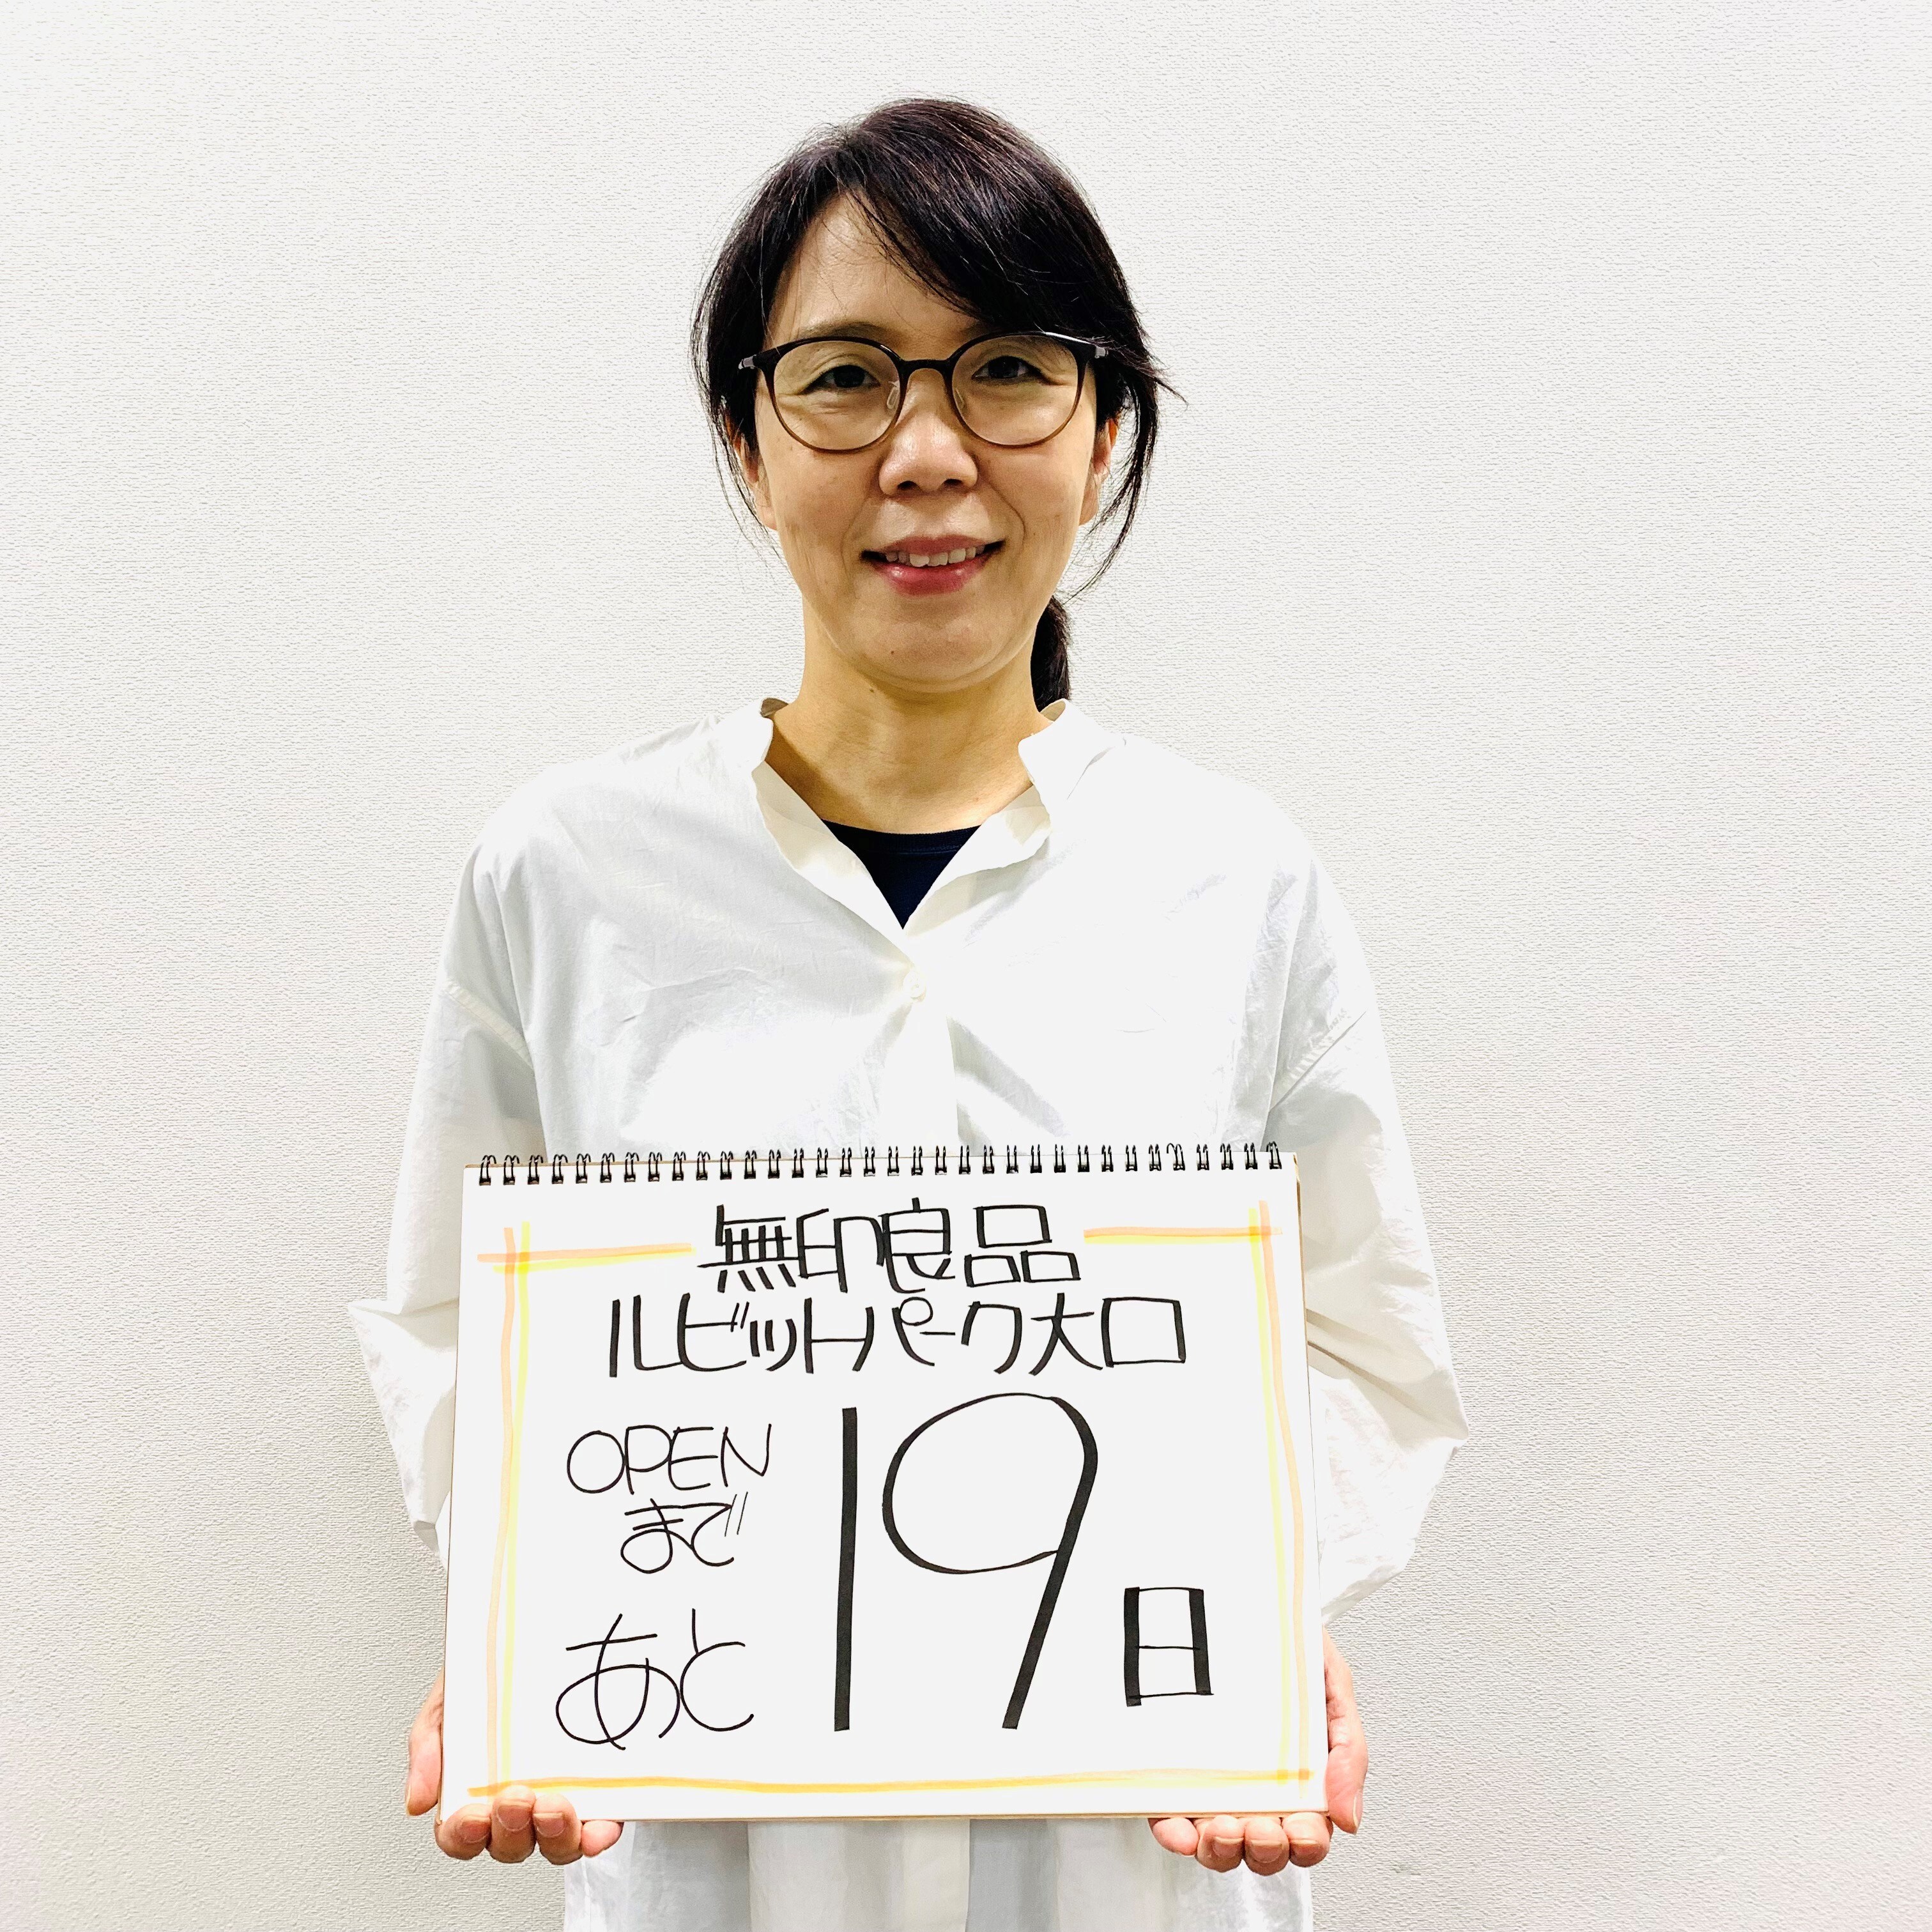 無印良品
ルビットパーク大口
OPEN
まで
あと 19日